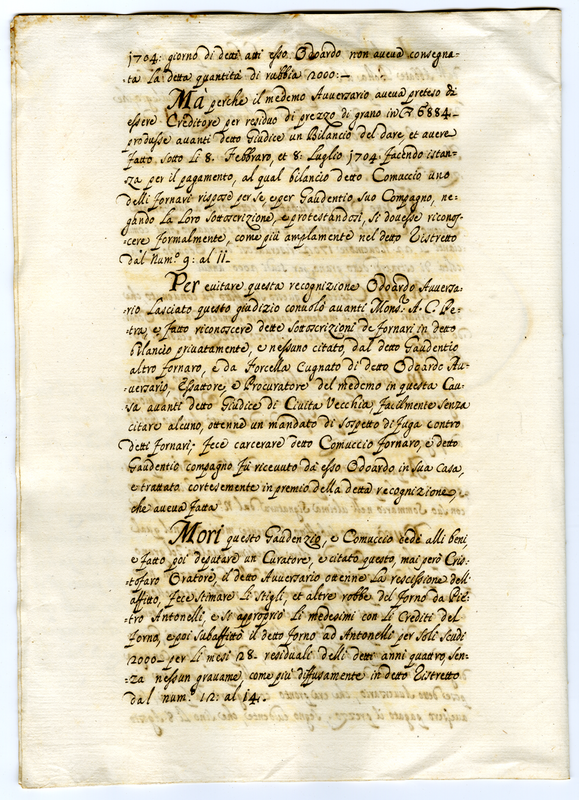 1704: giorno di detti atti esso Odoardo non aueua consegna-
ta la detta quantità di rubbia 2000:-
Mà perche il medemo Auuersario aueua preteso di
essere Creditore per residuo di prezzo di grano in 6884-
produsse auanti detto Giudice un Bilancio del dare, et auere
fatto sotto li 8. Febbraro, et 8. Luglio 1704. facendo istan-
za per il pagamento, al qual bilancio detto Comuccio uno
delli fornari rispose per se, e per Gaudentio suo Compagno, ne-
gando la loro sottoscrizione, e protestandosi, si douesse riconos-
cere formalmente, come più amplamente nel detto Ristretto
dal Num.º 9: al 11-
Per euitare questa recognizione Odoardo Auuersa-
rio lasciato questo giudizio conuolò auanti Mons.r A. C. Pe-
tra, e fatto riconoscere dette sottoscrizioni de fornari in detto
Bilancio priuatamente, e nessuno citato, dal detto Gaudentio
altro fornaro, e da Forcella Cugnato di detto Odoardo Au-
uersario, Esattore, e Procuratore del medemo in questa Cau-
sa auanti detto Giudice di Ciuita Vecchia facilmente senza
citare alcuno, ottenne un mandato di sospetto di fuga contro
detti fornari; fece carcerare detto Comuccio fornaro, e detto
Gaudentio compagno fù riceuuto da esso Odoardo in sua Casa,
e trattato cortesemente in premio della detta recognizione,
che aueua fatta
Morì questo Gaudenzio, e Comuccio cede alli beni,
e fatto poi deputare un Curatore, e citato questo, mai però Cris-
tofaro Oratore, il detto Auuersario ottenne la rescissione dell'
affitto, fece stimare li stigli, et altre robbe del forno da Pie-
tro Antonelli, e si appropriò li medesimi con li Crediti del
forno, e poi subaffittò il detto forno ad Antonelli per soli scudi
2000- per li mesi 28- residuali delli detti anni quattro, sen-
za nessun grauame, come più diffusamente in detto Ristretto
dal num.º 12: al 14:-